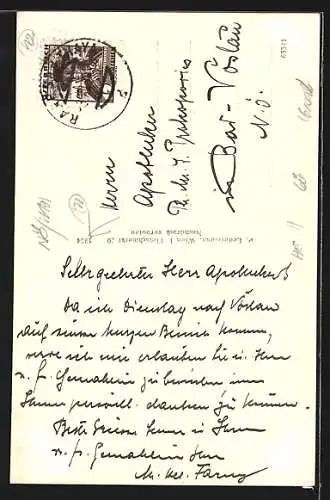 Herrn
Apotheker
Ph. Mr. J. Prokopovics
in Bad-Vöslau
N.Ö.
63341
P. Ledermann, Wien I. Fleischmarkt 20 1934
Nachdruck verboten
Sehr geehrter Herr Apotheker!
Da ich Dienstag nach Vöslau
auf einen kurzen Besuch komme,
werde ich mir erlauben Sie u. Ihre
Gemahlin zu besuchen
Ihnen persönl. danken zu können.
Beste Grüsse Ihnen u. Ihrer
Gemahlin Ihr